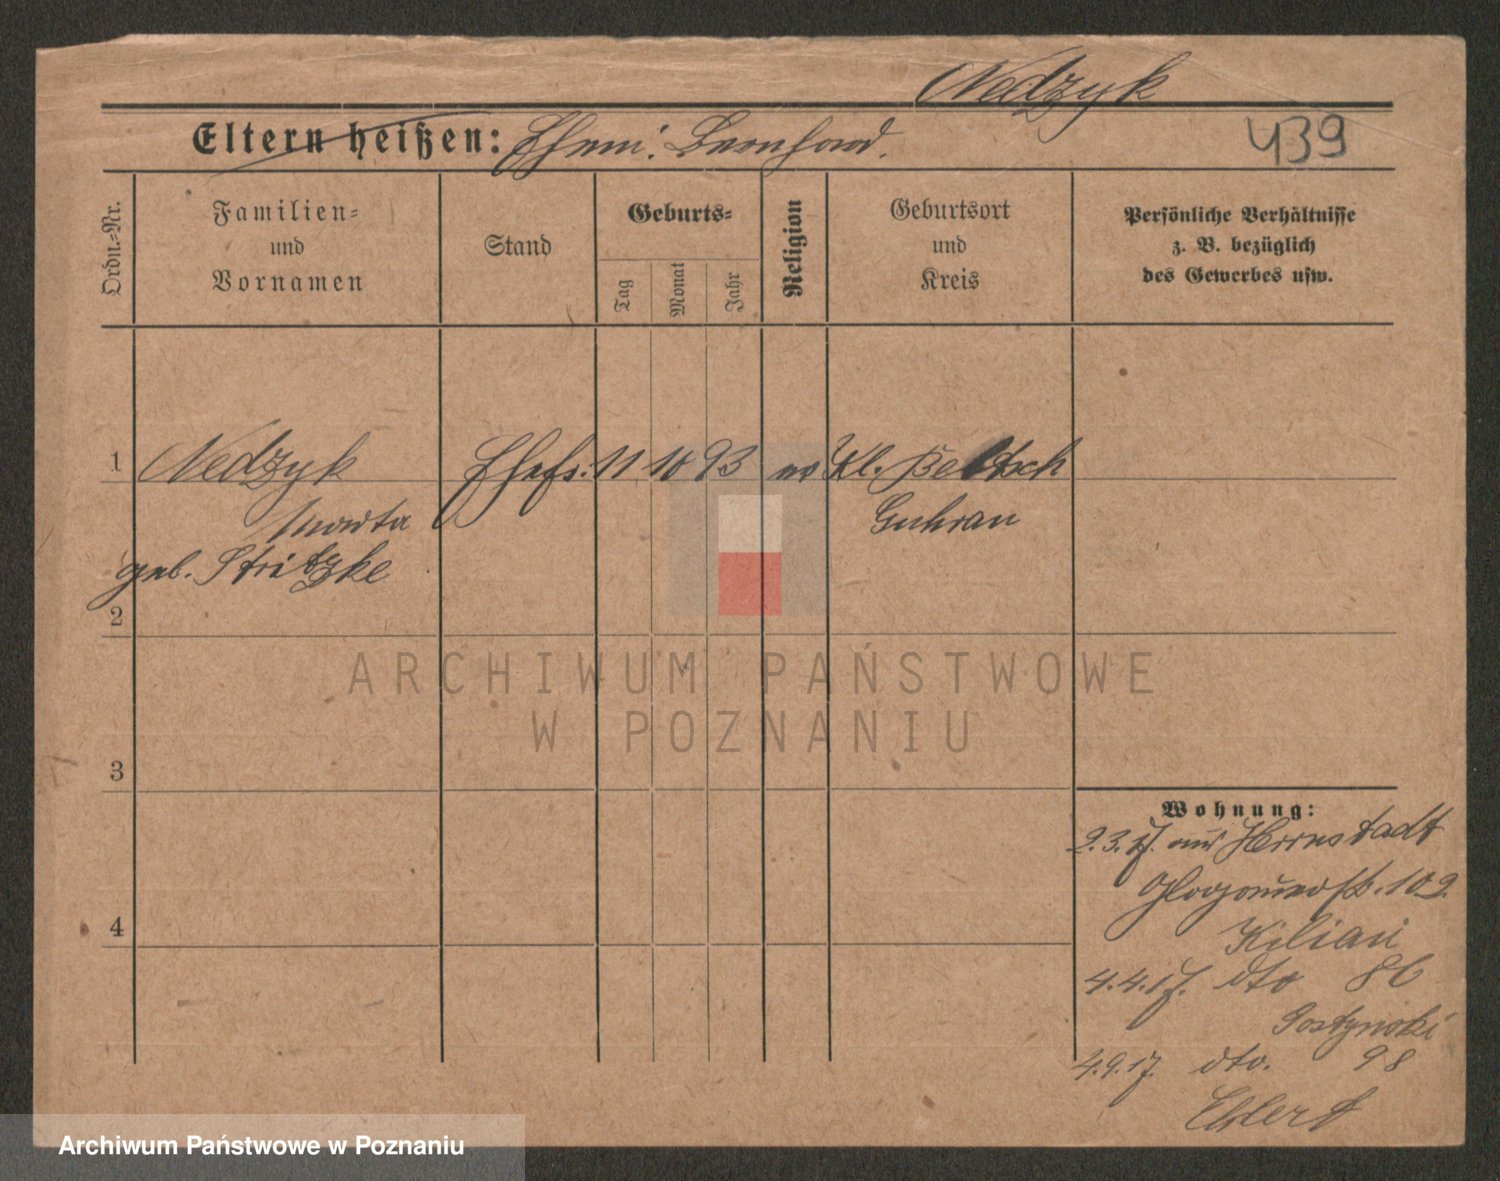 Nedzyk
Eltern heißen: Ehem. Bernhard.
439
Ordn.-Nr.
Familien-
und
Vornamen
Stand
Geburts-
Tag
Monat
Jahr
Religion
Geburtsort
und
Kreis
Persönliche Verhältnisse
z. B. bezüglich
des Gewerbes usw.
1 Nedzyk Ehefr. 11 10 93 ev Kl. Beltsch
Marta Guhrau
geb. Stritzke
2
ARCHIWUM PAŃSTWOWE
W POZNANIU
3
Wohnung:
2.3.17. aus Herrnstadt
Glogauerstr. 102.
Kilian
4
4.4.17. dto 86
Gostynski
4.9.17. dto. 98
Ehlert
Archiwum Państwowe w Poznaniu